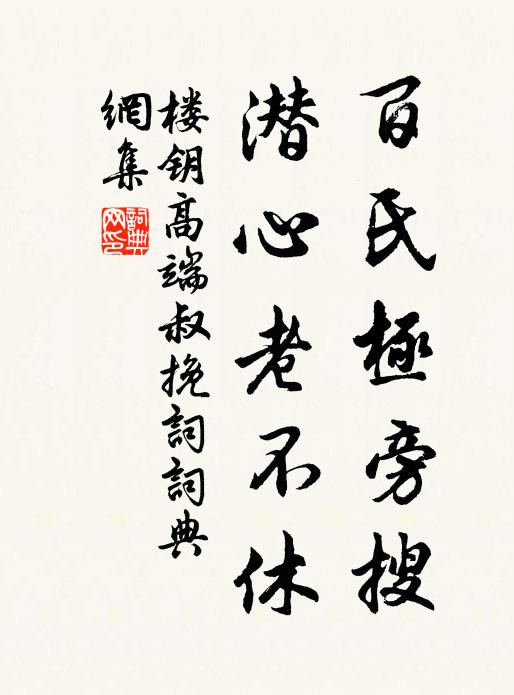 百氏極旁搜
潜心老不休
楼钥高端叔挽詞詞典
網集
詞典
网印